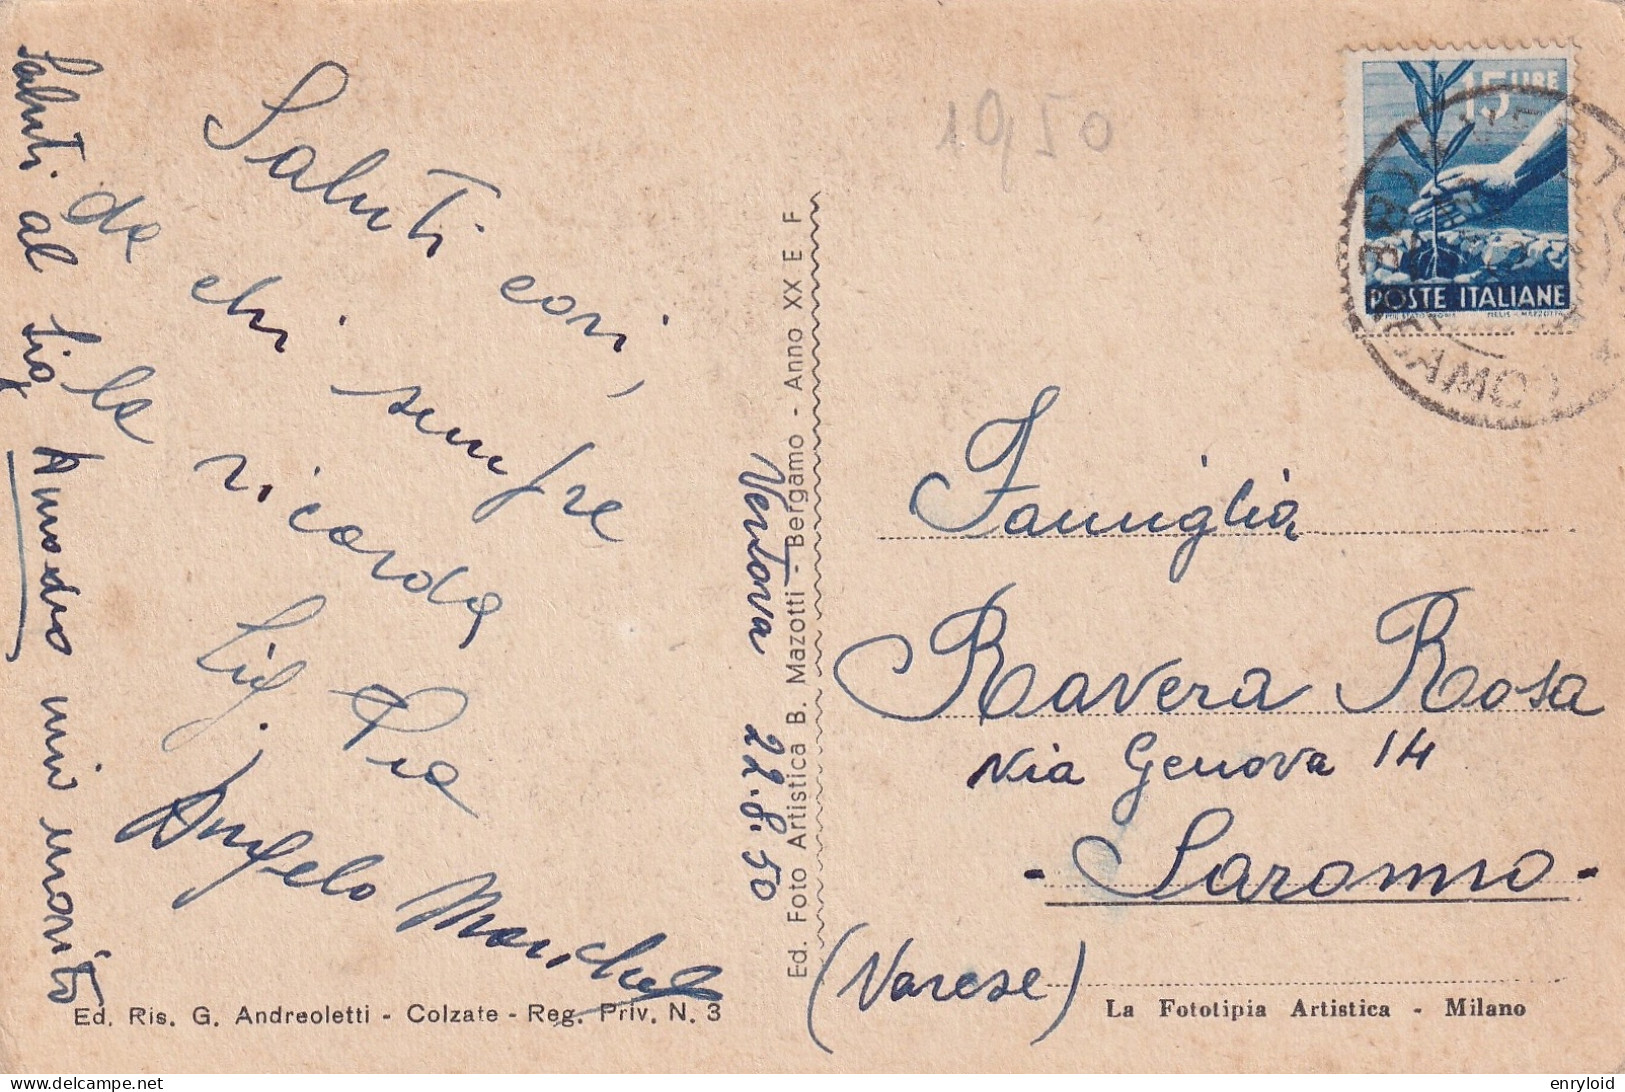 Saluti cari,
da chi sempre
la ricorda
Sig. Pia
Angelo
Saluti al Sig Amedeo mio marito
Vertova 22.8.50
Ed. Foto Artistica B. Mazotti - Bergamo - Anno XX E F
Ed. Ris. G. Andreoletti - Colzate - Reg. Priv. N. 3
1950
15 LIRE
POSTE ITALIANE
BERGAMO
Famiglia
Ravera Rosa
Via Genova 14
- Saronno -
(Varese)
La Fototipia Artistica - Milano
delcampe.net
enryloid